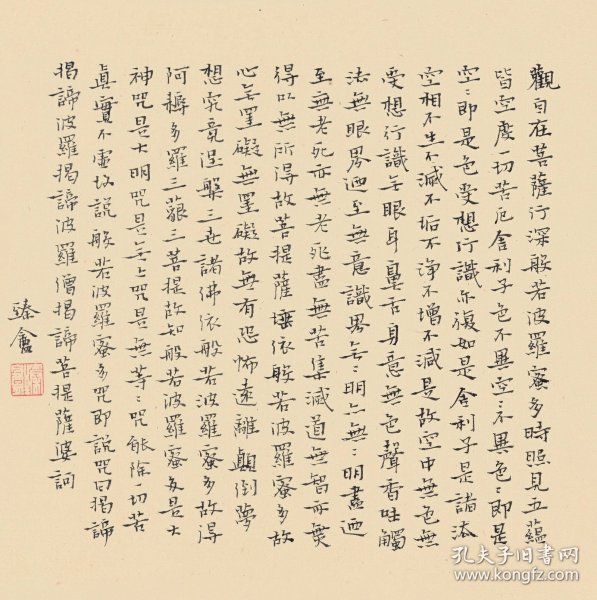 觀自在菩薩行深般若波羅蜜多時照見五蘊
皆空度一切苦厄舍利子色不異空﹕不異色﹕即是
空﹕即是色受想行識亦復如是舍利子是諸法
空相不生不滅不垢不淨不增不減是故空中無色無
受想行識無眼耳鼻舌身意無色聲香味觸
法無眼界迺至無意識界無﹕明亦無﹕明盡迺
至無老死亦無老死盡無苦集滅道無智亦無
得以無所得故菩提薩埵依般若波羅蜜多故
心無罣礙無罣礙故無有恐怖遠離顛倒夢
想究竟涅槃三世諸佛依般若波羅蜜多故得
阿耨多羅三藐三菩提故知般若波羅蜜多是大
神咒是大明咒是無上咒是無等﹕咒能除一切苦
真實不虛故說般若波羅蜜多咒即說咒曰揭諦
揭諦波羅揭諦波羅僧揭諦菩提薩婆訶
臻會
孔夫子旧书网
www.kongfz.com